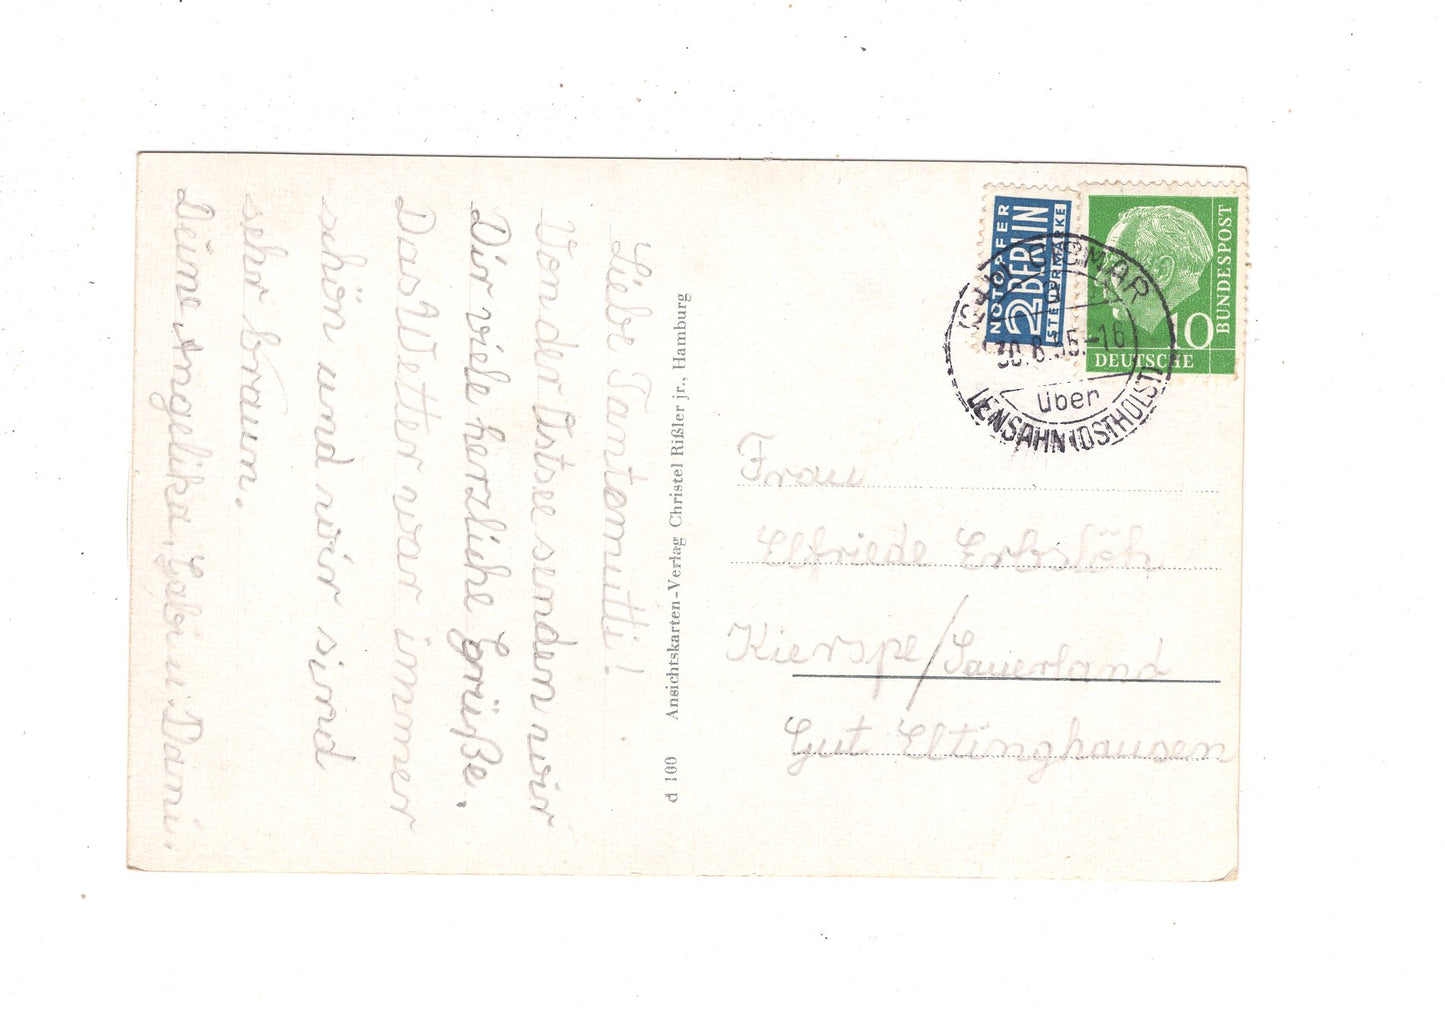 Liebe Tantemutti!
Von der Ostsee senden wir
Dir viele herzliche Grüße.
Das Wetter war immer
schön und wir sind
sehr braun.
Deine Angelika, Gabi u. Dami.
d 100 Ansichtskarten-Verlag Christel Rißler jr., Hamburg
NOTOPFER
2 BERLIN
STEUERMARKE
DEUTSCHE
BUNDESPOST
10
CISMAR
30.8.55.-16
über
LENSAHN (OSTHOLST)
Frau
Elfriede Erbslöh
Kierspe/Sauerland
Gut Eltinghausen